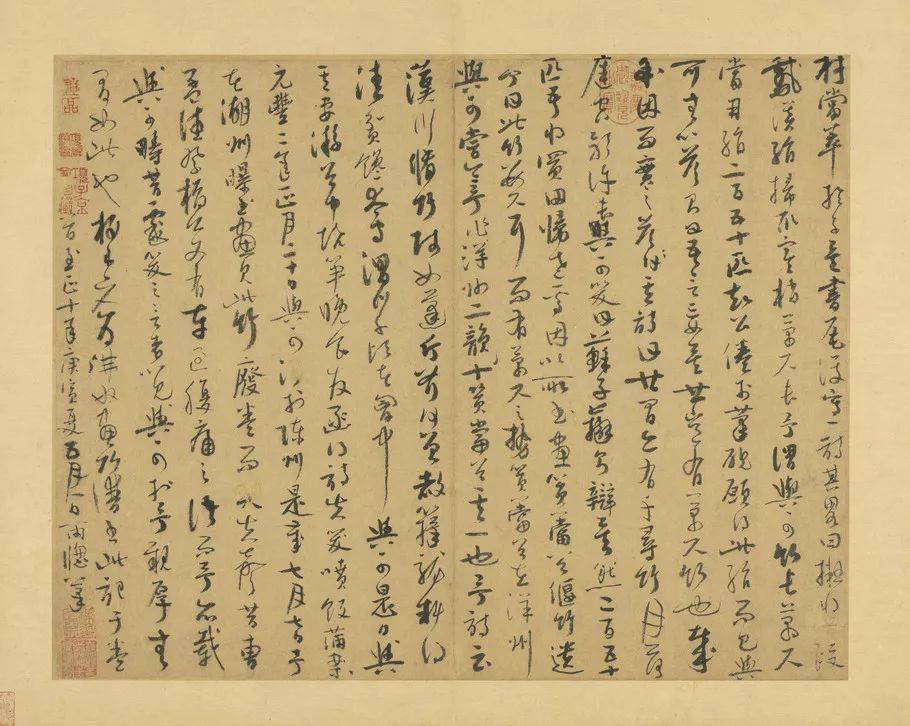 材當萃於子矣書尾復寫一詩其畧曰擬將一段
鵝溪絹掃取寒梢萬尺長予謂與可竹長萬尺
當用絹二百五十匹知公倦於筆硯願得此絹而已與
可無以答則曰吾言妄矣世豈有萬尺竹也哉
余因而實之答其詩曰世間亦有千尋竹月落
庭空影許長與可笑曰蘇子辯則辯矣然二百五十
匹吾將買田歸老焉因以所畫篔簹谷偃竹遺
予曰此竹數尺耳而有萬尺之勢篔簹谷在洋州
與可嘗令予作洋州篔簹谷其一也予詩云
漢川脩竹賤如蓬斤斧何曾赦籜龍料得
清貧饞太守渭川千畝在胸中 與可是日與
其妻游谷中燒筍晚食發函得詩失笑噴飯滿案
元豐二年正月二十日與可沒於陳州是歲七月七日予
在湖州曝書畫見此竹廢卷而哭失聲昔曹
孟德祭橋公文有車過腹痛之語而予亦載
與可疇昔戲笑之言者以見與可於予親厚無
間如此也梅道人為佛奴畫竹譜至此記于卷
首至正十年庚寅夏五月一日雨窗筆